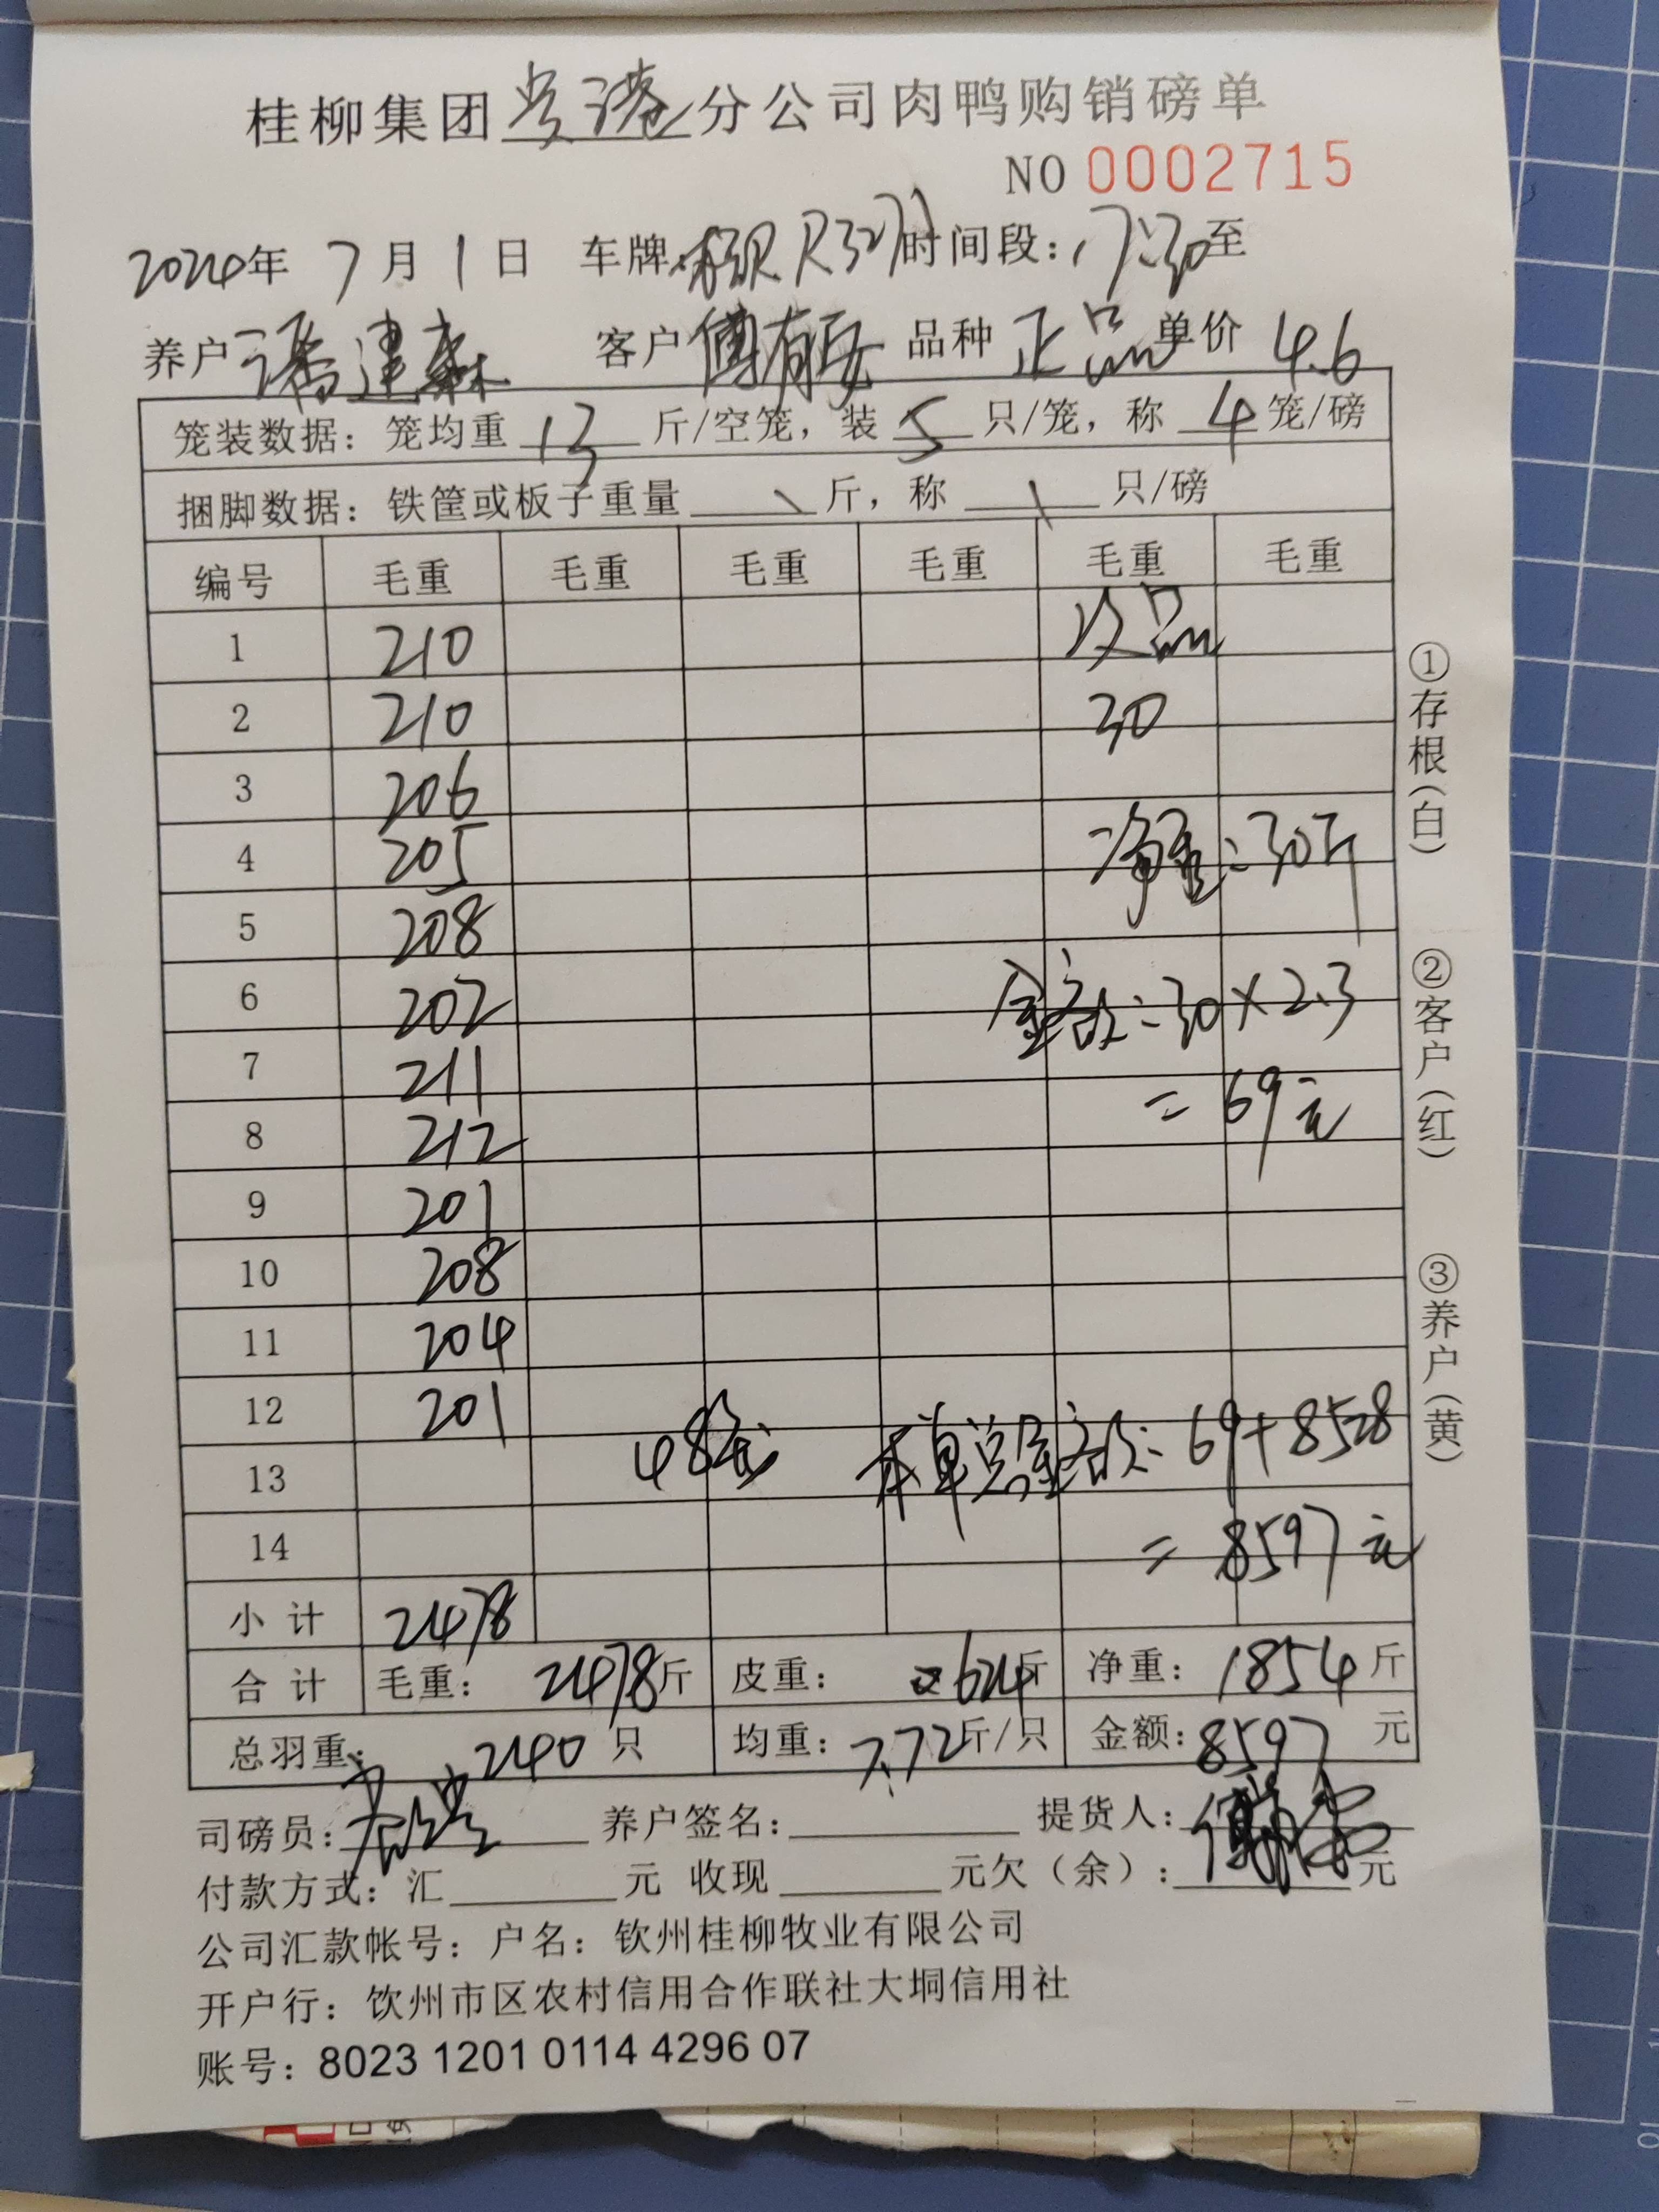 桂柳集团贵港分公司肉鸭购销磅单
NO 0002715
2024年 7 月 1 日 车牌 时间段: 17:30至
养户 潘建森 客户 傅有安 品种 正品 单价 4.6
笼装数据: 笼均重 13 斤/空笼, 装 5 只/笼, 称 4 笼/磅
捆脚数据: 铁筐或板子重量 \ 斤, 称 \ 只/磅
编号 毛重 毛重 毛重 毛重 毛重 毛重
1 210 次品
2 210 30
3 206
4 205 净重:30斤
5 208
6 202 金额:30×2.3
7 211 = 69元
8 212
9 201
10 208
11 204
12 201
13 48笼 本单总金额:69+8528
14 = 8597元
小 计 2478
合 计 毛重: 2478斤 皮重: 624斤 净重: 1854 斤
总羽重: 240 只 均重: 7.72斤/只 金额:8597 元
司磅员: 养户签名: 提货人:
付款方式: 汇 元 收现 元欠(余): 元
公司汇款帐号: 户名: 钦州桂柳牧业有限公司
开户行: 钦州市区农村信用合作联社大垌信用社
账号: 8023 1201 0114 4296 07
①存根(白)
②客户(红)
③养户(黄)